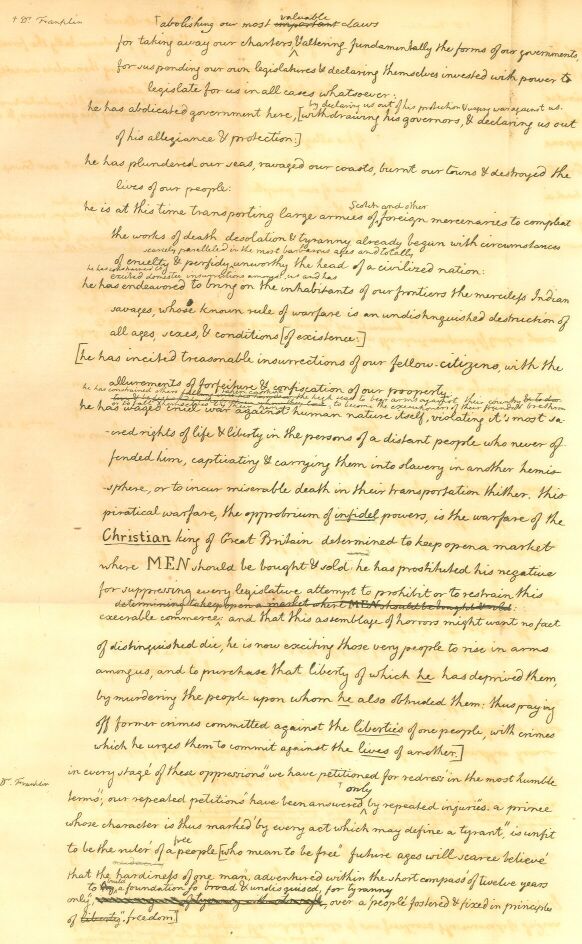 + Dr. Franklin
abolishing our most important valuable laws
for taking away our charters, & altering fundamentally the forms of our governments,
for suspending our own legislatures & declaring themselves invested with power to
legislate for us in all cases whatsoever:
by declaring us out of his protection & waging war against us.
he has abdicated government here, [withdrawing his governors, & declaring us out
of his allegiance & protection:]
he has plundered our seas, ravaged our coasts, burnt our towns & destroyed the
lives of our people:
Scotch and other
he is at this time transporting large armies of foreign mercenaries to compleat
the works of death desolation & tyranny already begun with circumstances
scarcely paralleled in the most barbarous ages and totally
of cruelty & perfidy unworthy the head of a civilized nation:
excited domestic insurrections amongst us and has
he has endeavored to bring on the inhabitants of our frontiers the merciless Indian
savages, whose known rule of warfare is an undistinguished destruction of
all ages, sexes, & conditions [of existence:]
[he has incited treasonable insurrections of our fellow-citizens, with the
allurements of forfeiture & confiscation of our property:
he has constrained others taken captives on the high seas to bear arms against their country
to become the executioners of their friends & brethren
he has waged cruel war against human nature itself, violating it's most sa-
-cred rights of life & liberty in the persons of a distant people who never of-
fended him, captivating & carrying them into slavery in another hemis-
-sphere, or to incur miserable death in their transportation thither. this
piratical warfare, the opprobrium of infidel powers, is the warfare of the
Christian king of Great Britain determined to keep open a market
where MEN should be bought & sold he has prostituted his negative
for suppressing every legislative attempt to prohibit or to restrain this
determining to keep open a market where MEN should be bought & sold:
execrable commerce: and that this assemblage of horrors might want no fact
of distinguished die, he is now exciting those very people to rise in arms
among us, and to purchase that liberty of which he has deprived them,
by murdering the people upon whom he also obtruded them: thus paying
off former crimes committed against the liberties of one people, with crimes
which he urges them to commit against the lives of another.]
in every stage of these oppressions we have petitioned for redress in the most humble
Dr. Franklin
only
terms; our repeated petitions have been answered by repeated injuries. a prince
whose character is thus marked by every act which may define a tyrant, is unfit
free
to be the ruler of a people [who mean to be free future ages will scarce believe
that the hardiness of one man, adventured within the short compass of twelve years
to build a foundation so broad & undisguised, for tyranny
only, over a people fostered & fixed in principles
of liberty freedom]